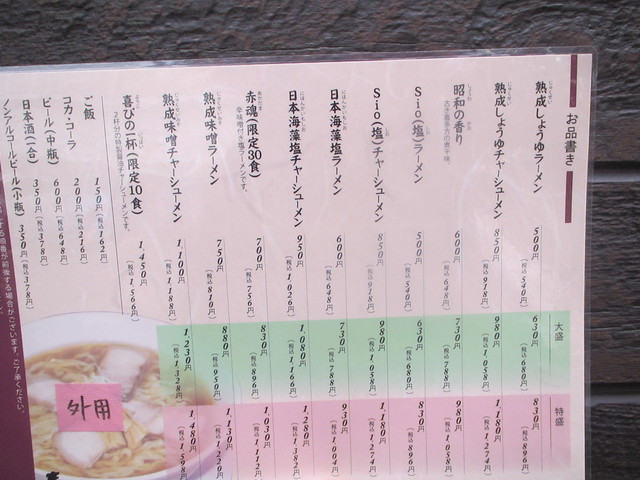 お品書き
大盛
特盛
熟成しょうゆラーメン 500円(税込540円) 630円(税込680円) 830円(税込896円)
熟成しょうゆチャーシューメン 850円(税込918円) 980円(税込1,058円) 1,180円(税込1,274円)
昭和の香り 600円(税込648円) 730円(税込788円) 980円(税込1,058円)
Sio(塩)ラーメン 500円(税込540円) 630円(税込680円) 830円(税込896円)
Sio(塩)チャーシューメン 850円(税込918円) 980円(税込1,058円) 1,180円(税込1,274円)
日本海藻塩ラーメン 600円(税込648円) 730円(税込788円) 930円(税込1,004円)
日本海藻塩チャーシューメン 950円(税込1,026円) 1,080円(税込1,166円) 1,280円(税込1,382円)
赤魂(限定30食) 700円(税込756円) 830円(税込896円) 1,030円(税込1,112円)
辛味噌付き塩ラーメンです。
熟成味噌ラーメン 750円(税込810円) 880円(税込950円) 1,130円(税込1,220円)
熟成味噌チャーシューメン 1,100円(税込1,188円) 1,230円(税込1,328円) 1,480円(税込1,598円)
喜びの一杯(限定10食) 1,450円(税込1,566円)
2杯分の特製醤油チャーシューメンです。
ご飯 150円(税込162円)
コカ・コーラ 200円(税込216円)
ビール(中瓶) 600円(税込648円)
日本酒(一合) 350円(税込378円)
ノンアルコールビール(小瓶) 350円(税込378円)
する場合がございます。ご了承ください。
外用